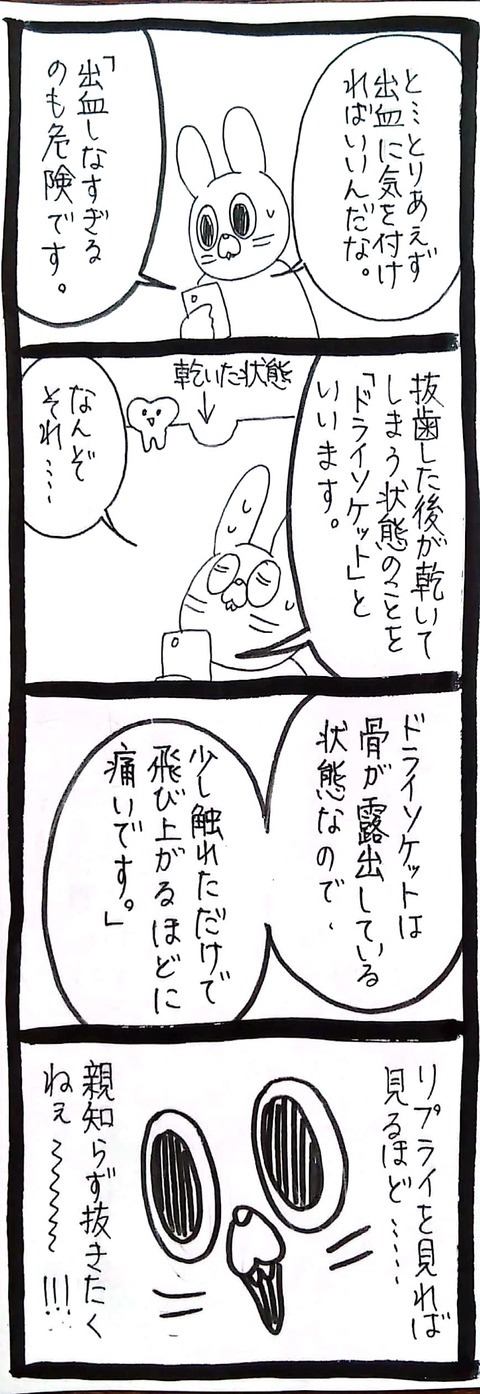 と…とりあえず
出血に気を付け
ればいいんだな。
「出血しなすぎる
のも危険です。
抜歯した後が乾いて
しまう状態のことを
「ドライソケット」と
いいます。
乾いた状態
なんぞ
それ……
ドライソケットは
骨が露出している
状態なので、
少し触れただけで
飛び上がるほどに
痛いです。」
リプライを見れば
見るほど……
親知らず抜きたく
ねぇ〜〜〜〜!!!